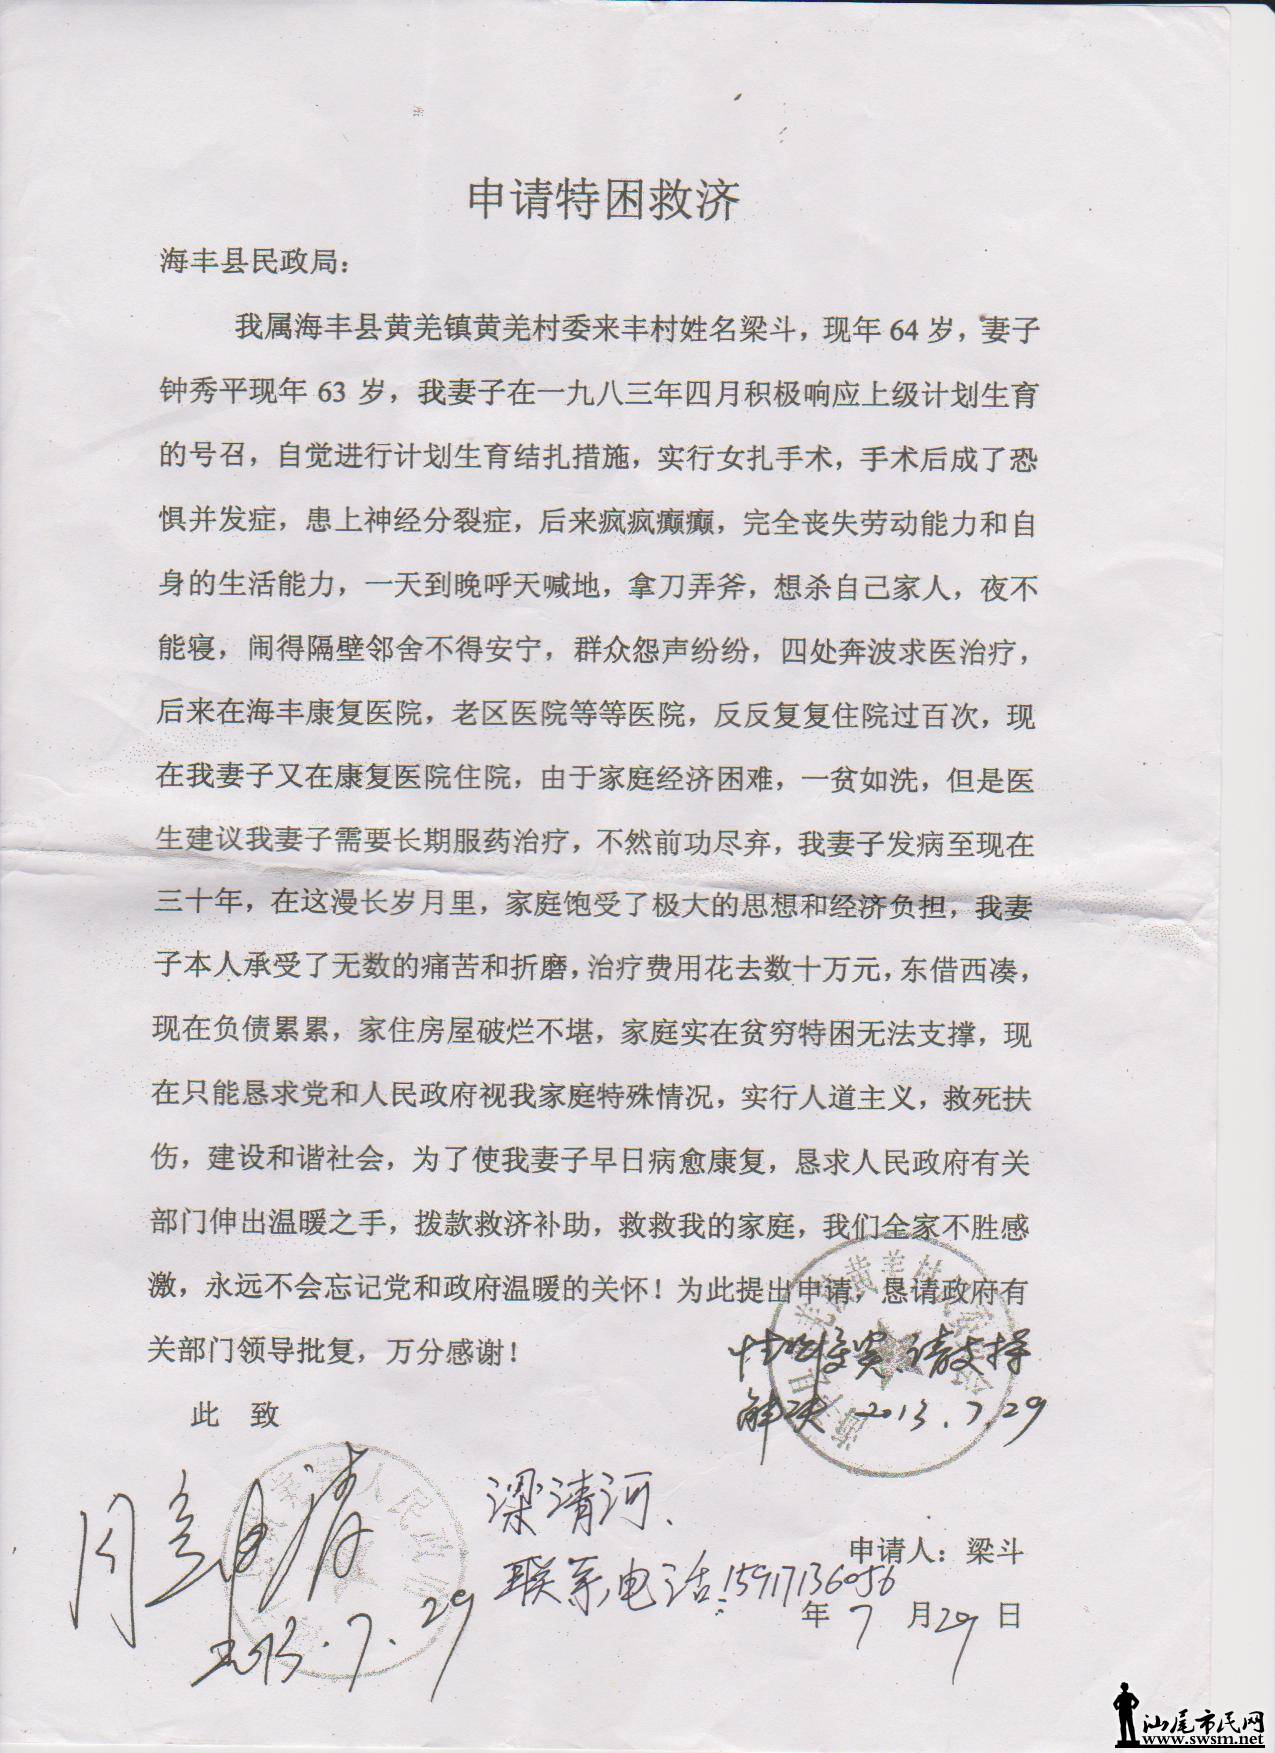 申请特困救济
海丰县民政局：
我属海丰县黄羌镇黄羌村委来丰村姓名梁斗，现年 64 岁，妻子
钟秀平现年 63 岁，我妻子在一九八三年四月积极响应上级计划生育
的号召，自觉进行计划生育结扎措施，实行女扎手术，手术后成了恐
惧并发症，患上神经分裂症，后来疯疯癫癫，完全丧失劳动能力和自
身的生活能力，一天到晚呼天喊地，拿刀弄斧，想杀自己家人，夜不
能寝，闹得隔壁邻舍不得安宁，群众怨声纷纷，四处奔波求医治疗，
后来在海丰康复医院，老区医院等等医院，反反复复住院过百次，现
在我妻子又在康复医院住院，由于家庭经济困难，一贫如洗，但是医
生建议我妻子需要长期服药治疗，不然前功尽弃，我妻子发病至现在
三十年，在这漫长岁月里，家庭饱受了极大的思想和经济负担，我妻
子本人承受了无数的痛苦和折磨，治疗费用花去数十万元，东借西凑，
现在负债累累，家住房屋破烂不堪，家庭实在贫穷特困无法支撑，现
在只能恳求党和人民政府视我家庭特殊情况，实行人道主义，救死扶
伤，建设和谐社会，为了使我妻子早日病愈康复，恳求人民政府有关
部门伸出温暖之手，拨款救济补助，救救我的家庭，我们全家不胜感
激，永远不会忘记党和政府温暖的关怀！为此提出申请，恳请政府有
关部门领导批复，万分感谢！
情况属实 请支持
解决 2013.7.29
此 致
2013.7.29
梁清河.
联系电话:15917136056
申请人：梁斗
年 7 月 29 日
汕尾市民网
www.swsm.net